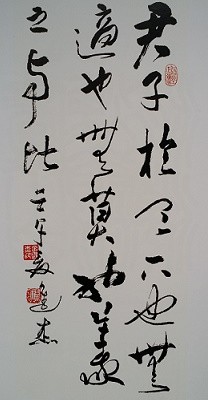 君子於天下也無
適也無莫也義
之與比